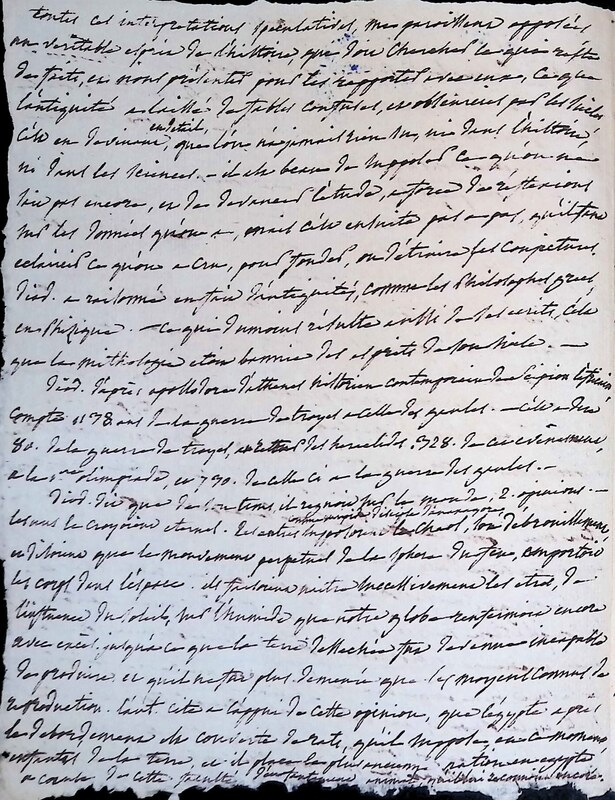 toutes ces interprétations spéculatives, me paroissent opposées
au veritable esprit de l'histoire, qui doit chercher ce qui reste
de faits, en nous présentant pour les rapporter avec eux, ce que
l'antiquité a laissé de fables confuses, et obscurcies par les siècles
c'est en devinant en détail, que l'on n'a jamais rien su, ni dans l'histoire,
ni dans les sciences. - il est beau de supposer ce qu'on ne
sait pas encore, et de devancer l'étude, a force de réflexions
sur les données qu'on a, mais c'est ensuite pas a pas, qu'il faut
eclaircir ce qu'on a cru, pour fonder, ou détruire ses conjectures.
Diod. a raisonné en fait d'antiquité, comme les Philosophes grecs,
en Phisique. - ce qui du moins résulte aussi de ses ecrits, c'est
que la mithologie etoit bannie des esprits de son siècle. -
Diod. d'après apollodore d'athenes historien contemporain de Scipion
compte 1138 ans de la guerre de troye a celle des gaules. - c'est a dire
80. de la guerre de troye, au retour des heraclides. 328. de cet evènement,
a la 1ere olimpiade, et 730. de celle ci a la guerre des gaules. -
Diod. dit que de son tems, il regnoit sur le monde, 2. opinions. -
les uns le croyoient eternel. les autres supposoient le chaos, son debrouillement,
et disoient que le mouvement perpetuel de la sphere du feu, emportoit
les corps dans l'espace. ils faisoient naitre successivement les etres, de
l'influence du soleil, sur l'humide que notre globe renfermoit encore
avec excès, jusqu'a ce que la terre dessechée fut devenue incapable
de produire, et qu'il ne fut plus demeuré que les moyens connus de
reproduction. l'aut. cite a l'appui de cette opinion, que l'egypte après
le debordement est couverte de rats, qu'il suppose, en ce moment
enfantés de la terre, et il place la plus ancienne nation en egypte
a cause de cette faculté